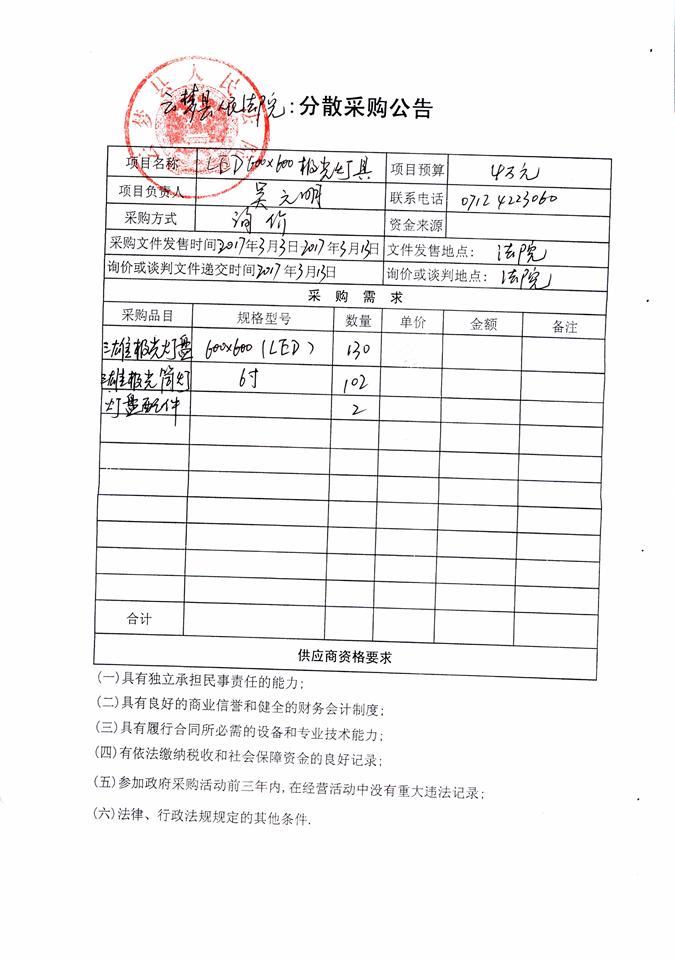 云梦县人民法院:分散采购公告
项目名称 LED600×600极光灯具 项目预算 4万元
项目负责人 吴元明 联系电话 0712 4223060
采购方式 询价 资金来源
采购文件发售时间2017年3月3日-2017年3月13日 文件发售地点: 法院
询价或谈判文件递交时间2017年3月13日 询价或谈判地点: 法院
采购需求
采购品目 规格型号 数量 单价 金额 备注
三雄极光灯盘 600×600(LED) 130
三雄极光筒灯 6寸 102
灯盘配件 2
合计
供应商资格要求
(一)具有独立承担民事责任的能力;
(二)具有良好的商业信誉和健全的财务会计制度;
(三)具有履行合同所必需的设备和专业技术能力;
(四)有依法缴纳税收和社会保障资金的良好记录;
(五)参加政府采购活动前三年内,在经营活动中没有重大违法记录;
(六)法律、行政法规规定的其他条件.